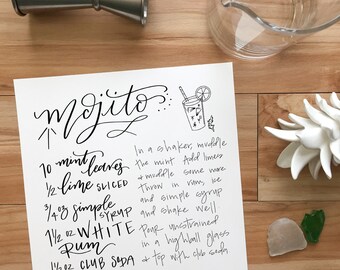 mojito
10 mint leaves
1/2 lime SLICED
3/4 oz simple SYRUP
1 1/2 oz WHITE Rum
1 1/2 oz CLUB SODA
In a shaker, muddle
the mint. Add limes
+ muddle some more
Throw in rum, ice
and simple syrup
and shake well
Pour unstrained
in a highball glass
+ top with club soda